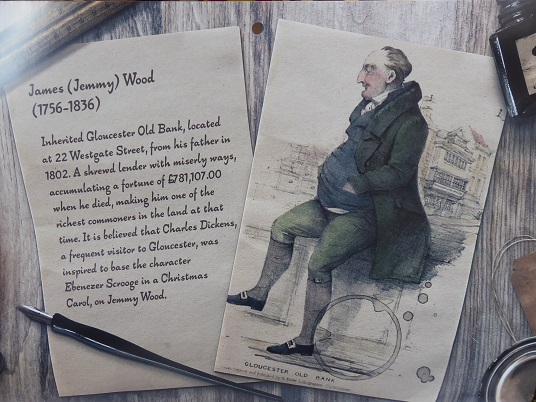 James (Jemmy) Wood
(1756-1836)
Inherited Gloucester Old Bank, located
at 22 Westgate Street, from his father in
1802. A shrewd lender with miserly ways,
accumulating a fortune of £781,107.00
when he died, making him one of the
richest commoners in the land at that
time. It is believed that Charles Dickens,
a frequent visitor to Gloucester, was
inspired to base the character
Ebenezer Scrooge in a Christmas
Carol, on Jemmy Wood.
GLOUCESTER OLD BANK